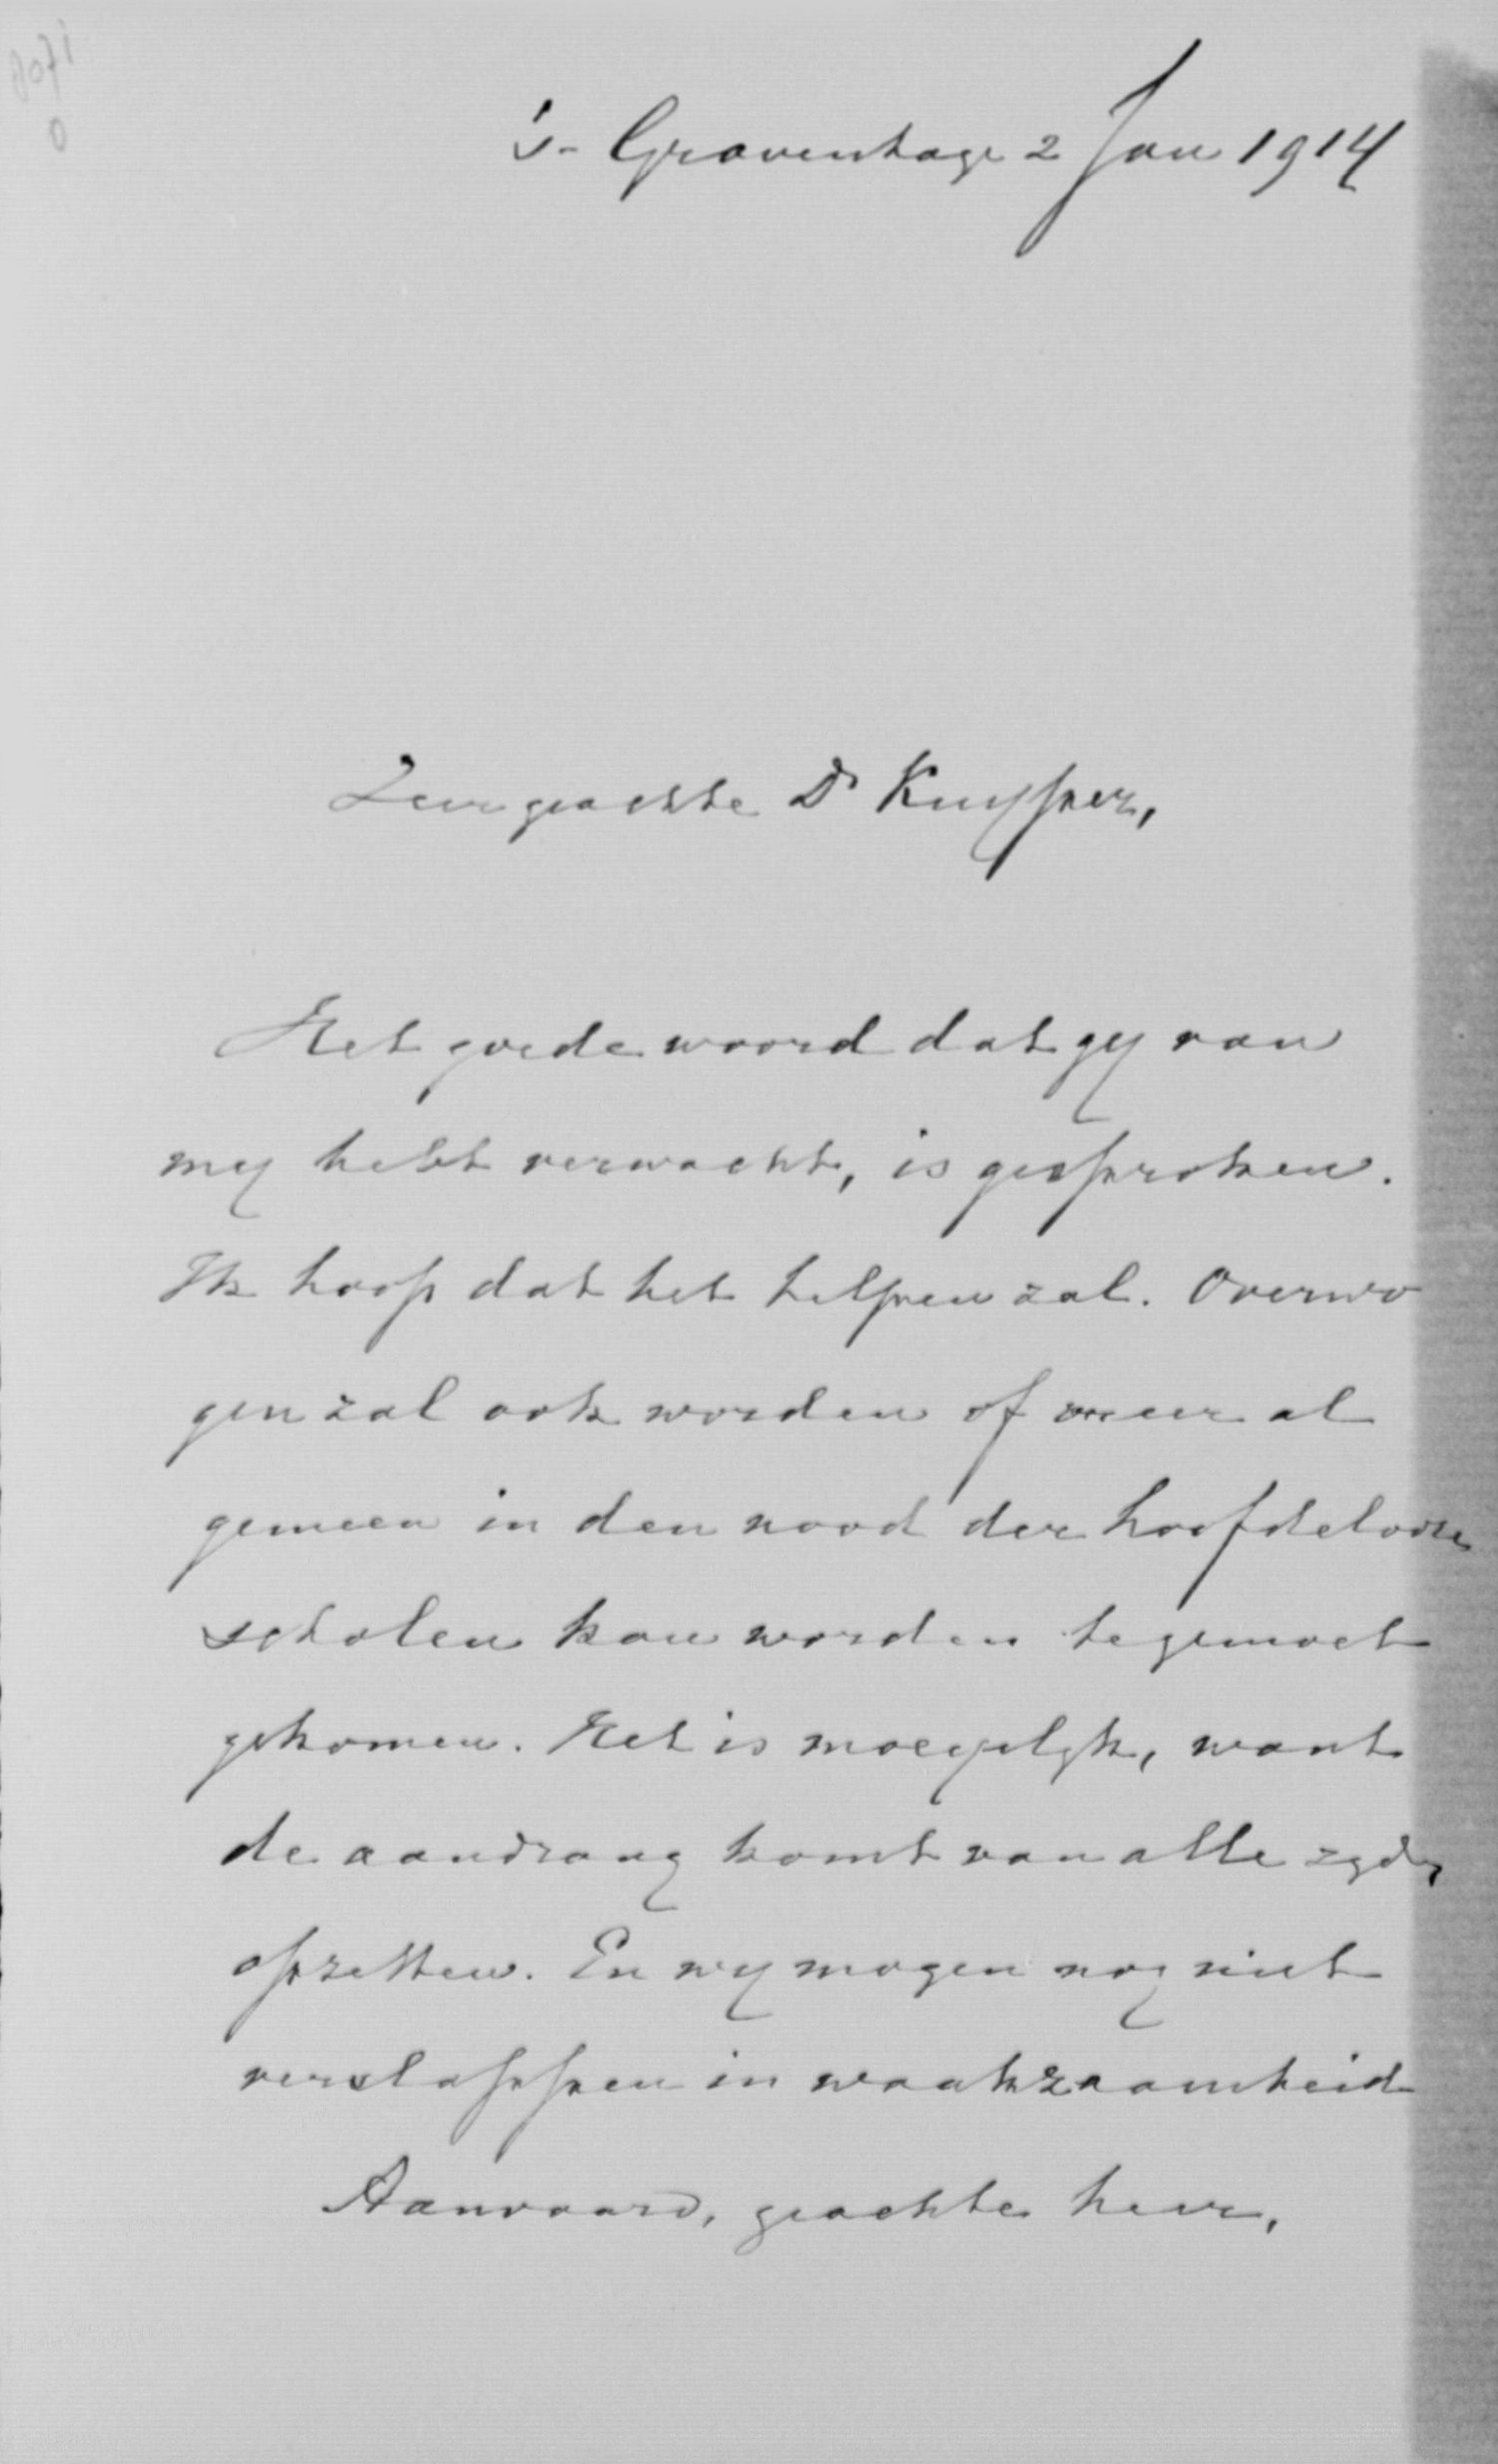 's-Gravenhage 2 Jan 1914
Zeer geachte Dr Kuyper,
Het goede woord dat gy van
my hebt verwacht, is gesproken.
Ik hoop dat het helpen zal. Overwo
gen zal ook worden of meer al
gemeen in den nood der hoofdelooze
scholen kan worden tegemoet
gekomen. Het is moeyelyk, want
de aandrang komt van alle zyden
opzetten. En wy mogen nog niet
verslappen in waakzaamheid
Aanvaard, geachte heer,